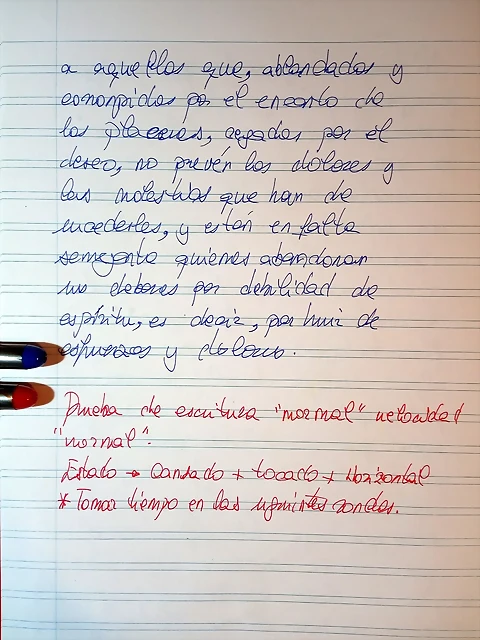 a aquellos que, ablandados y
corrompidos por el encanto de
los placeres, cegados por el
deseo, no prevén los dolores y
las molestias que han de
sucederles, y están en falta
semejante quienes abandonan
sus deberes por debilidad de
espíritu, es decir, por huir de
esfuerzos y dolores.
Prueba de escritura "normal" velocidad
"normal".
Estado → Cansado + tocado + Horizontal
* Tomar tiempo en las siguientes rondas.